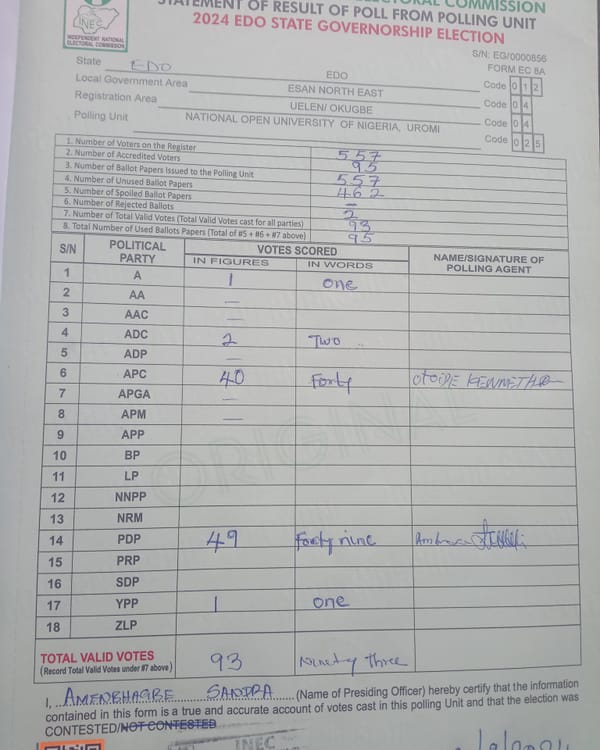 ELECTORAL COMMISSION
STATEMENT OF RESULT OF POLL FROM POLLING UNIT
2024 EDO STATE GOVERNORSHIP ELECTION
INEC
INDEPENDENT NATIONAL
ELECTORAL COMMISSION
S/N: EG/0000856
FORM EC 8A
State EDO EDO Code 0 1 2
Local Government Area ESAN NORTH EAST Code 0 4
Registration Area UELEN/ OKUGBE Code 0 4
Polling Unit NATIONAL OPEN UNIVERSITY OF NIGERIA, UROMI Code 0 2 5
1. Number of Voters on the Register 557
2. Number of Accredited Voters 95
3. Number of Ballot Papers Issued to the Polling Unit 557
4. Number of Unused Ballot Papers 462
5. Number of Spoiled Ballot Papers –
6. Number of Rejected Ballots 2
7. Number of Total Valid Votes (Total Valid Votes cast for all parties) 93
8. Total Number of Used Ballots Papers (Total of #5 + #6 + #7 above) 95
S/N POLITICAL PARTY VOTES SCORED NAME/SIGNATURE OF POLLING AGENT
IN FIGURES IN WORDS
1 A 1 one
2 AA —
3 AAC —
4 ADC 2 Two
5 ADP —
6 APC 40 Forty
7 APGA —
8 APM —
9 APP
10 BP
11 LP
12 NNPP
13 NRM
14 PDP 49 Forty nine
15 PRP
16 SDP
17 YPP 1 one
18 ZLP
ORIGINAL
TOTAL VALID VOTES 93 Ninety Three
(Record Total Valid Votes under #7 above)
I, AMENBHAGBE SANDRA (Name of Presiding Officer) hereby certify that the information
contained in this form is a true and accurate account of votes cast in this polling Unit and that the election was
CONTESTED/NOT CONTESTED
INEC